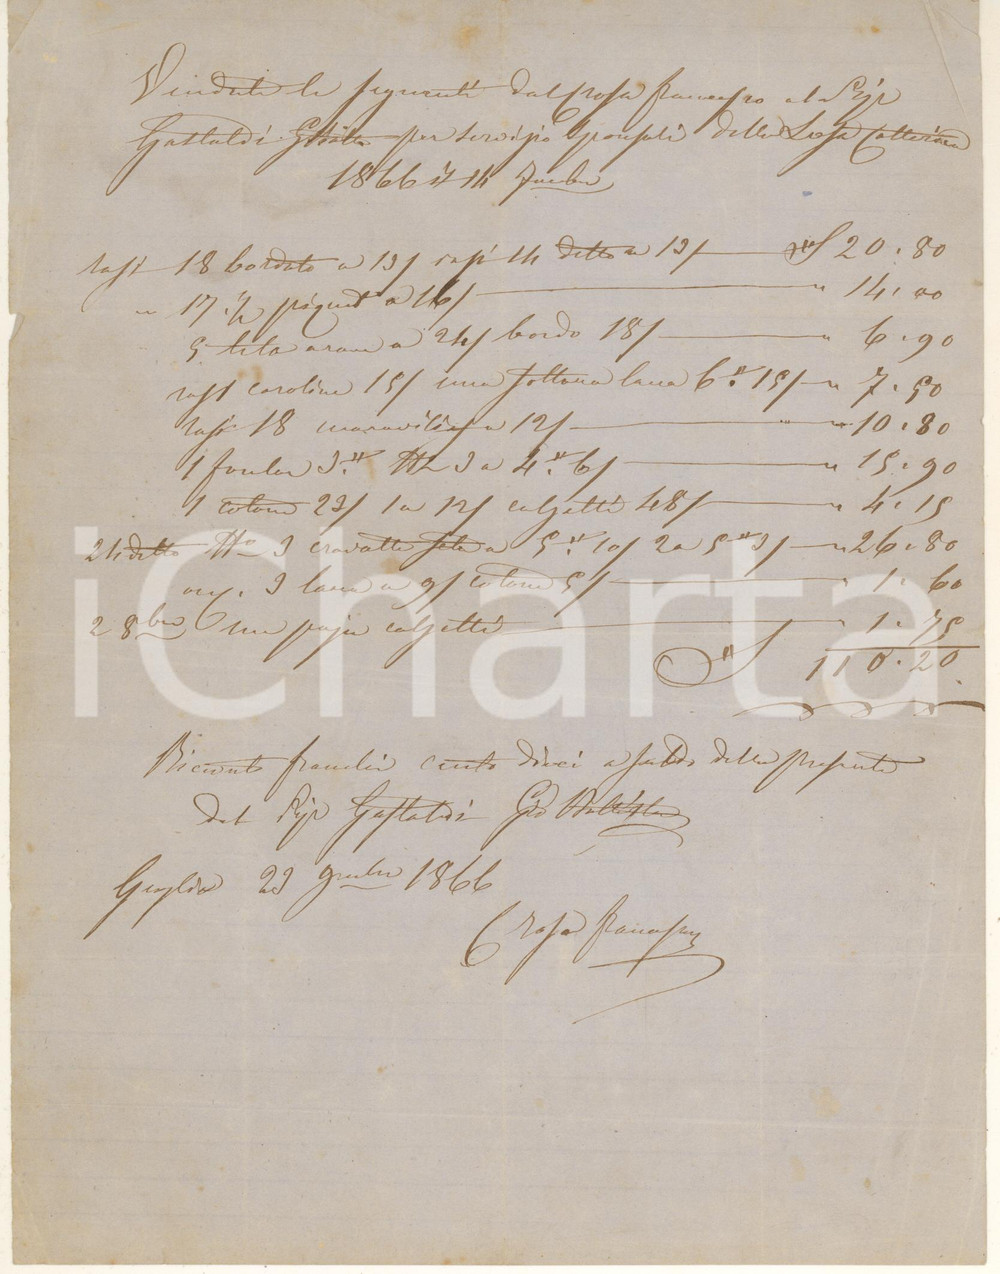 Vendute le seguenti dal Crosa Francesco al Sigr
Gastaldi Gbatta per servizio sponsali della Catterina
1866 il 14
rasi 18 bordato a 13/ rasi 14 detto a 13/ 20.80
" 17 ½ piquet a 16/ " 14.00
5 tela a 24/ bordo 18/ " 6.90
rasi caroline 15/ una sottana lana 6." 15/ " 7.50
rasi 18 a 12/ " 10.80
1 foular 3." 3 a 4." 6/ " 15.90
1 cotone 23/ 1 a 12/ calzetti 48/ " 4.15
24 detto 3 cravatte seta a 5." 10/ 2 a 5" 3/ " 26.80
3 lana a 9/ cotone 5/ " 1.60
2 8bre Un pajo calzetti " 1.75
110.20
Ricevuto franchi cento dieci a saldo della presente
dal Sigr Gastaldi Gio Battista
23 1866
Crosa Francesco
iCharta